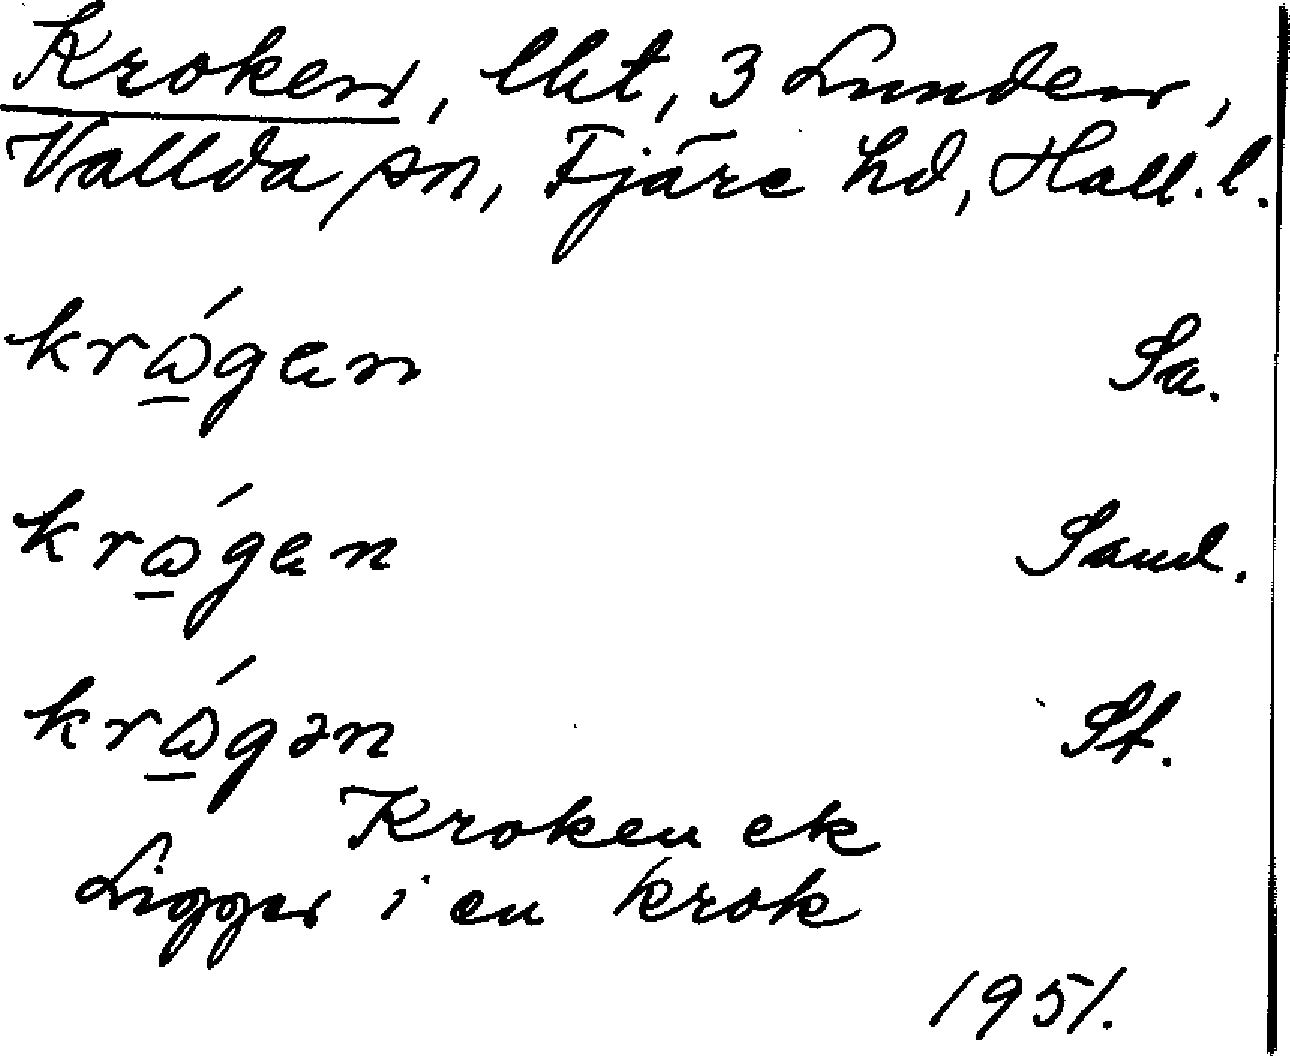 Kroken, lht, 3 Lunden,
Vallda sn, Fjäre hd, Hall. l.
krώ̲gen Sa.
krώ̲gen Sand.
krώ̲gən St.
Kroken ek
Ligger i en krok
1951.